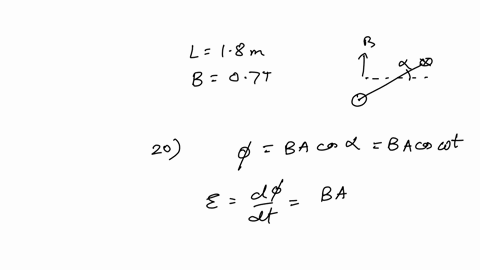 L = 1.8 m
B = 0.7T
B
α
20) ϕ = BA cos α = BA cos ωt
ε = dϕ/dt = BA